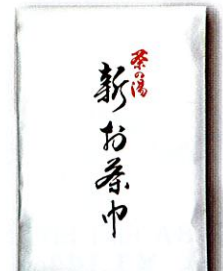 茶の湯
新お茶巾